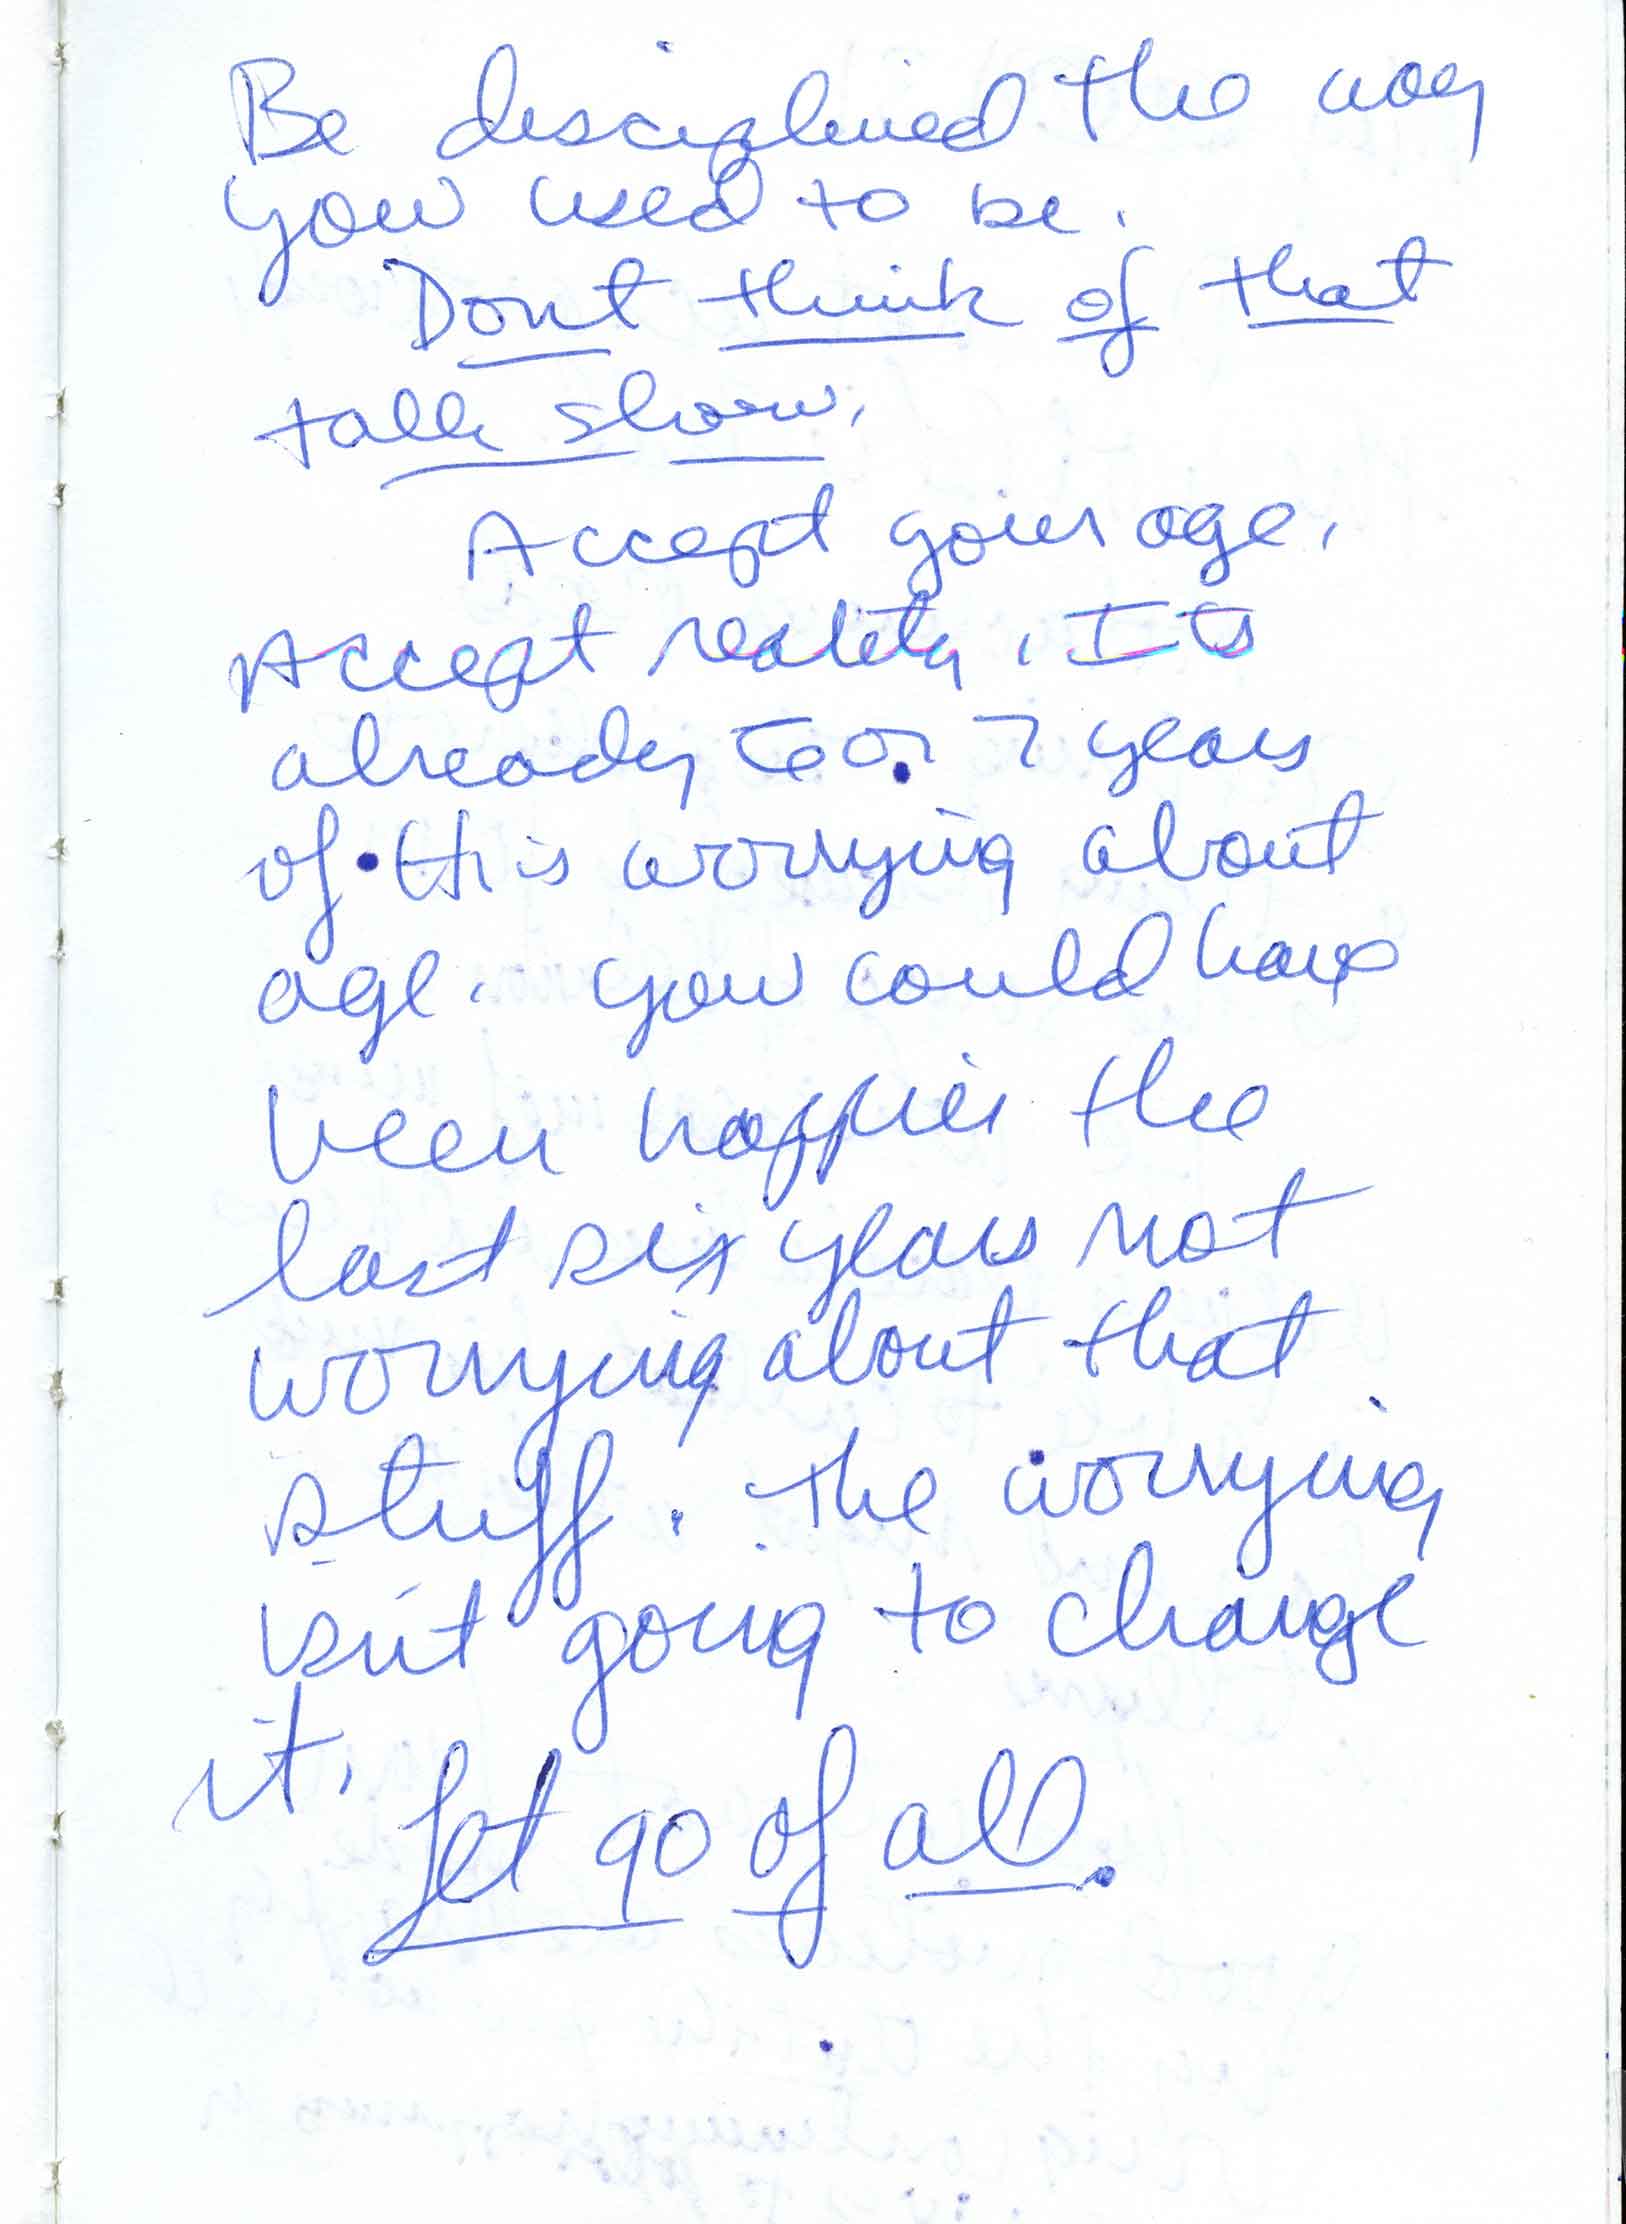 Be disciplined the way
you used to be.
Dont think of that
talk show.
Accept your age.
Accept reality. Its
already 6 or 7 years
of this worrying about
age. you could have
been happier the
last six years not
worrying about that
stuff. The worrying
isn't going to change
it.
Let go of all.